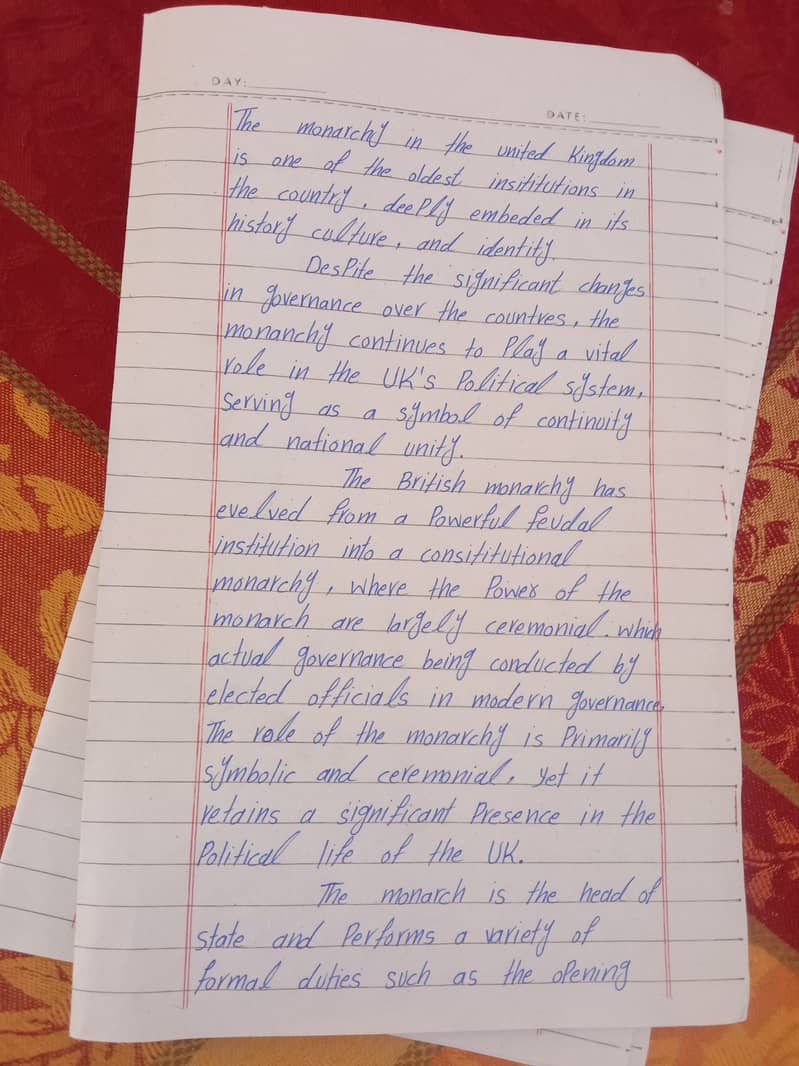 DAY:
DATE:
The monarchy in the united Kingdom
is one of the oldest insititutions in
the country, deePly embeded in its
history culture, and identity.
DesPite the significant changes
in governance over the countres, the
monanchy continues to Play a vital
role in the UK's Political system,
serving as a symbol of continuity
and national unity.
The British monarchy has
evelved from a Powerful feudal
institution into a consititutional
monarchy, where the Power of the
monarch are largely ceremonial. which
actual governance being conducted by
elected officials in modern governance,
The role of the monarchy is Primarily
symbolic and ceremonial, yet it
retains a significant Presence in the
Political life of the UK.
The monarch is the head of
state and Performs a variety of
formal duties such as the opening